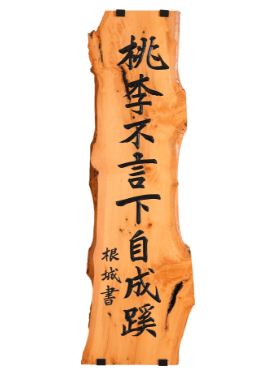 桃李不言下自成蹊
根城書